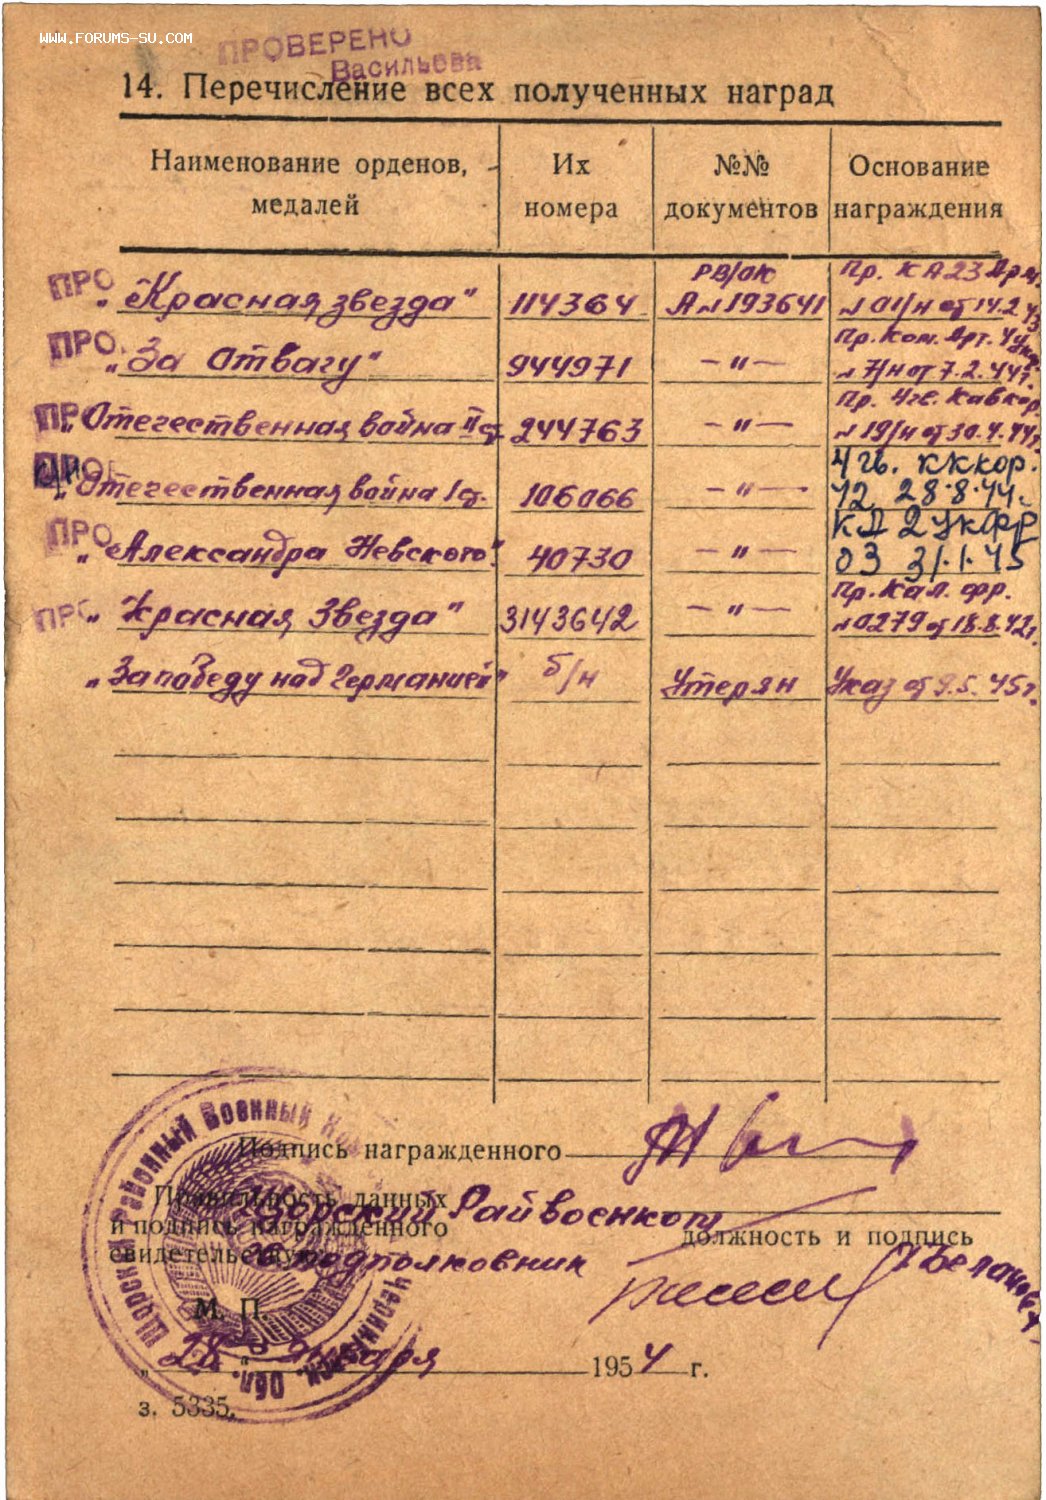 WWW.FORUMS-SU.COM
ПРОВЕРЕНО
Васильева
14. Перечисление всех полученных наград
Наименование орденов, медалей
Их номера
№№ документов
Основание награждения
ПРО
„Красная звезда" 114364 РВ/ОК А №193641 Пр. КА 23 Арм. №01/н от 14.2.43
ПРО.
„За Отвагу" 944971 —"— Пр. Ком. Арт. 4 №7/н от 7.2.44г.
ПРО
„Отечественная война II ст. 244763 —"— Пр. 4 гв. Кавкор. №19/н от 30.4.44г.
ПРОВ
„Отечественная война I ст. 106066 —"— 4 гв. ККкор. 12 28.8.44г.
ПРО
„Александра Невского" 40730 —"— 2 Укфр 03 31.1.45
ПРО
„Красная Звезда" 3143642 —"— Пр. Кал. фр. №0279 от 18.8.42г.
„За победу над Германией" б/н Утерян Указ от 9.5.45г.
Подпись награжденного
Правильность данных
и подпись награжденного
свидетельствую
Щорский Райвоенком
подполковник
должность и подпись
М. П.
„28" января 1954 г.
з. 5335.
Щорский Районный Военный
Черниговск. Обл.